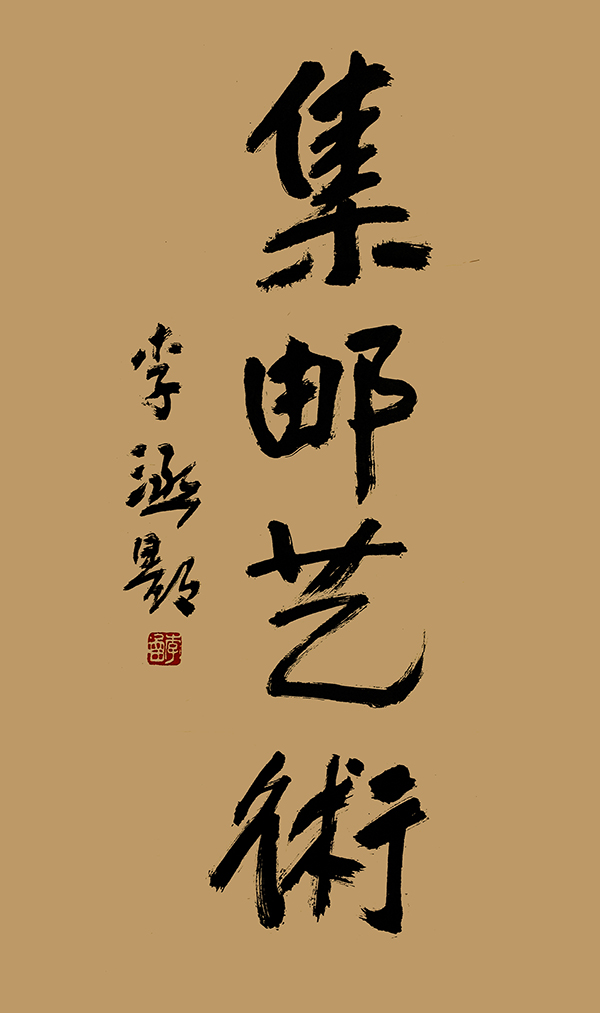 集邮艺術
李涵题